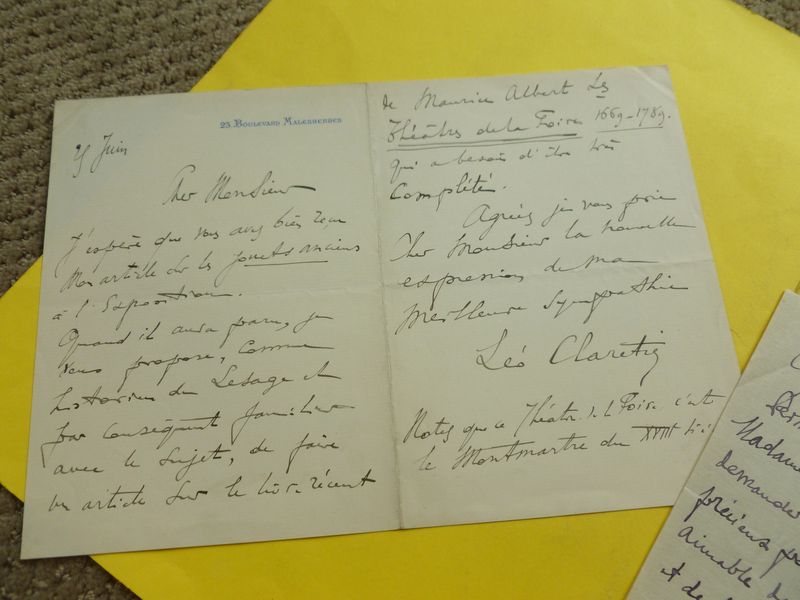 25 Boulevard Malesherbes
25 Juin
Cher Monsieur
J'espère que vous avez bien reçu
mon article sur les jouets anciens
à l'Exposition.
Quand il aura paru, je
vous propose, comme
historien de Lesage et
par conséquent familier
avec le sujet, de faire
un article sur le livre récent
de Maurice Albert Les
Théâtres de la Foire 1669-1789.
qui a besoin d'être très
complété.
Agréez je vous prie
Cher Monsieur la nouvelle
expression de ma
meilleure sympathie
Léo Claretie
Notez que ce Théâtre de la Foire c'est
le Montmartre du XVIIIe
Madame
demander
précieux
aimable
et de